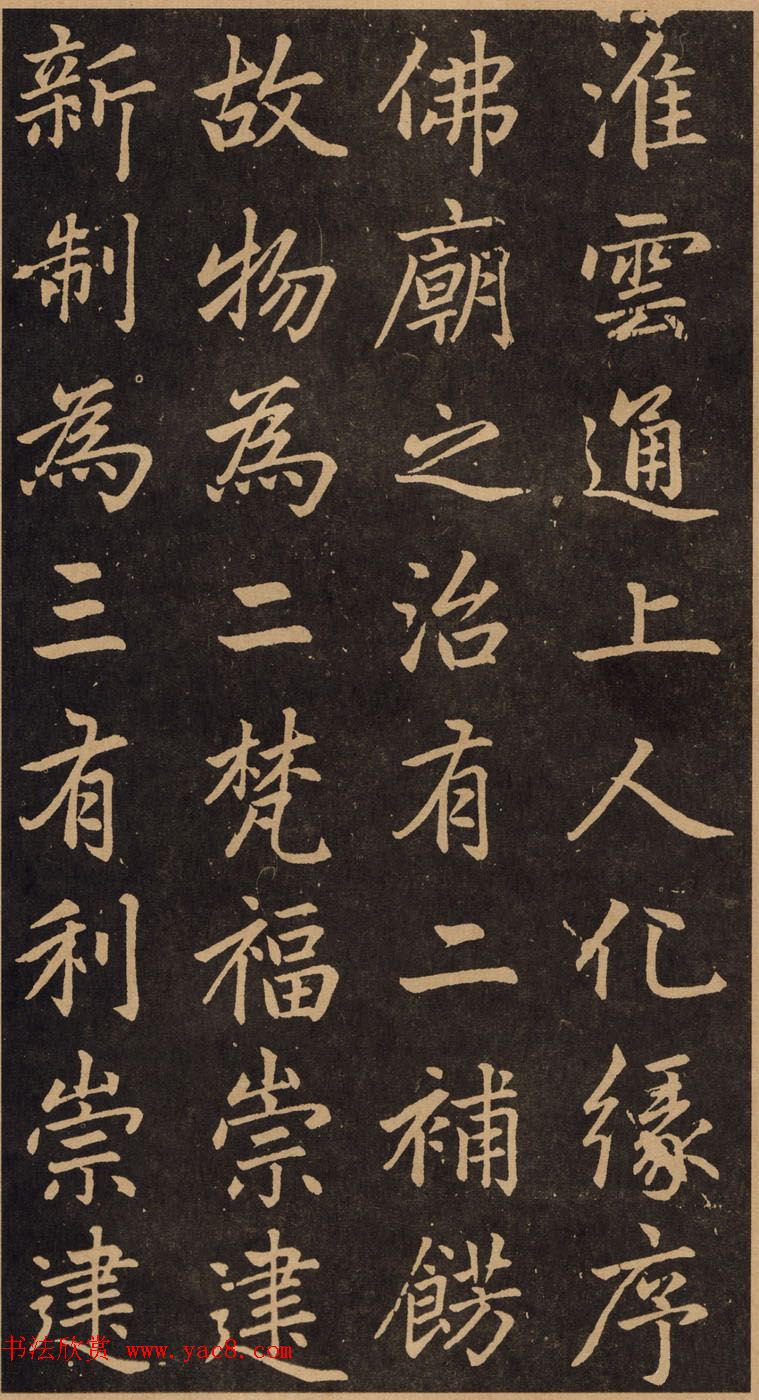 淮雲通上人化緣序
佛廟之治有二補餝
故物為二梵福崇建
新制為三有利崇建
书法欣赏 www.yac8.com